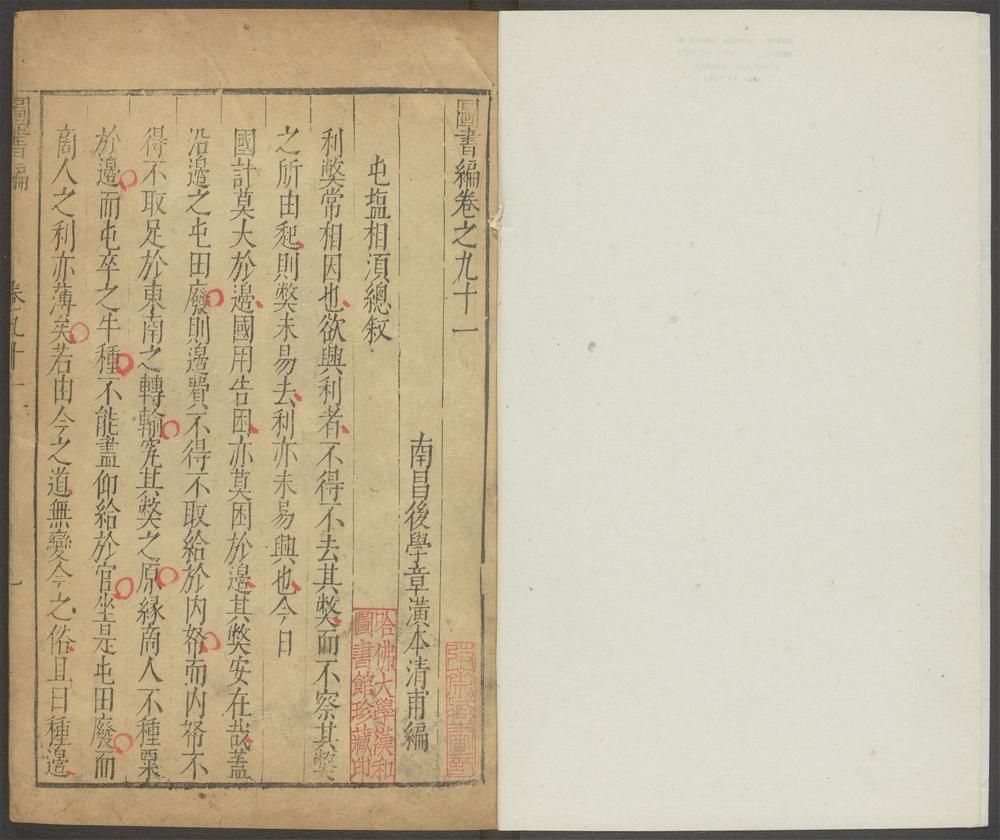 圖書編卷之九十一
南昌後學章潢本清甫編
屯塩相湏總敘
利獘常相因也欲興利者不得不去其獘而不察其獘
之所由起則獘未易去利亦未易興也今日
國計莫大於邊國用告困亦莫困於邊其獘安在哉蓋
沿邊之屯田廢則邊費不得不取給於内帑而内帑不
得不取足於東南之轉輸究其獘之原緣商人不種粟
於邊而屯卒之牛種不能盡仰給於官坐是屯田廢而
商人之利亦薄矣若由今之道無變今之俗且日種邊
圖書編
卷九十一
一
哈佛大學漢和
圖書館珍藏印